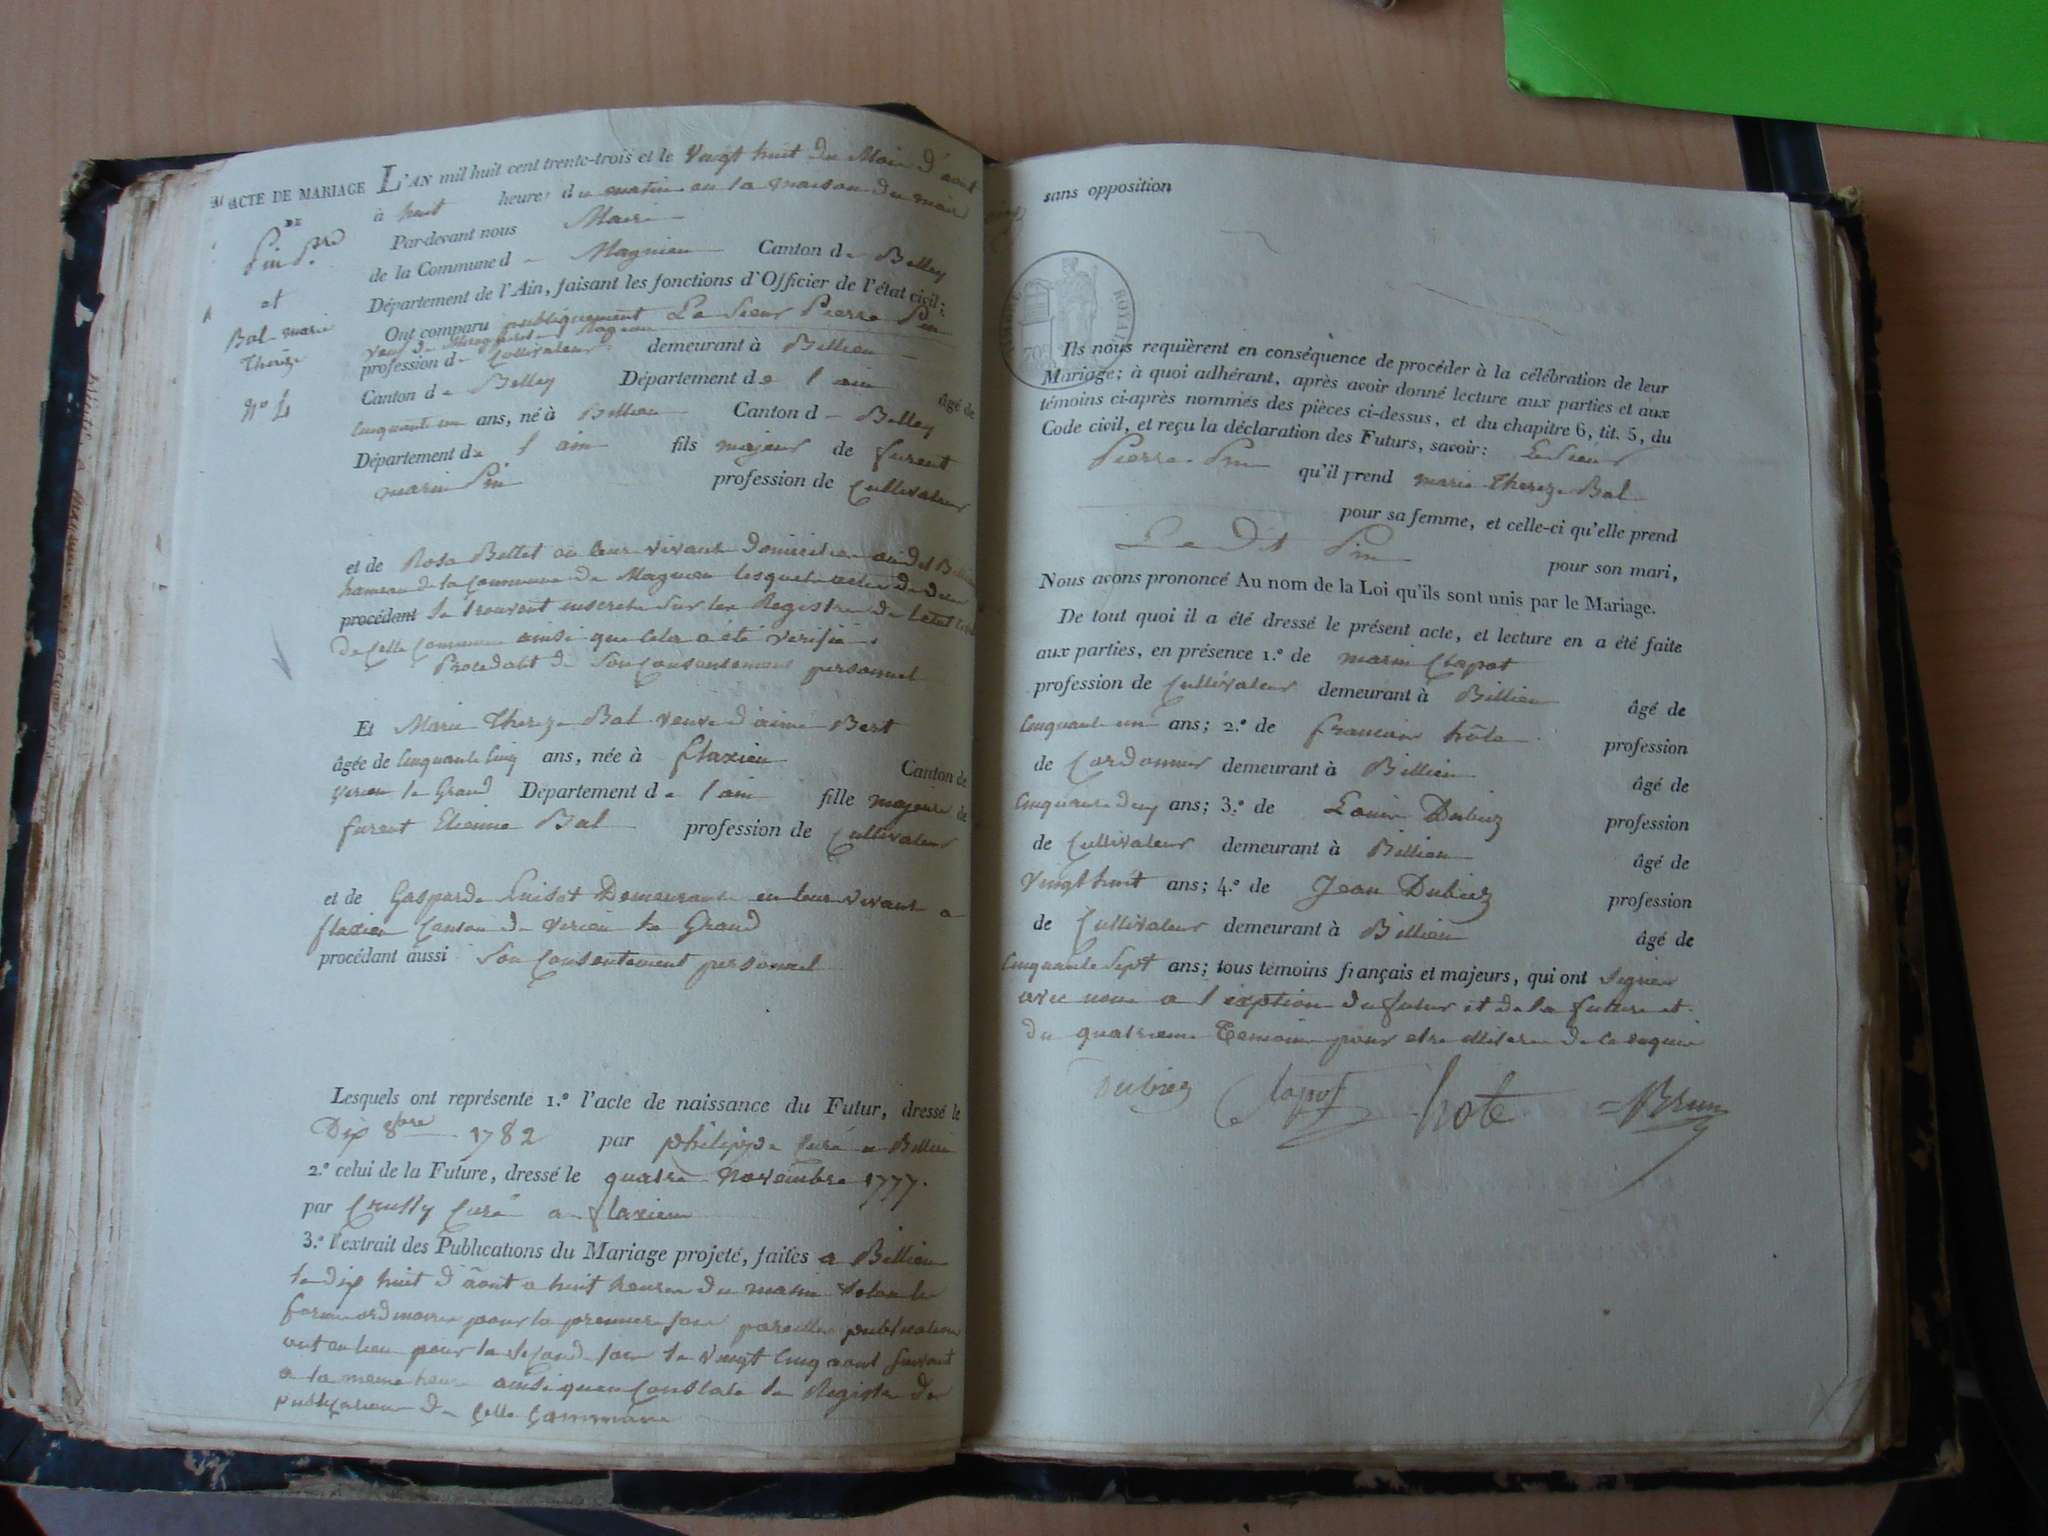 ACTE DE MARIAGE
DE
Pin P.re
et
Bal marie
Thereze
N.o 4
L'AN mil huit cent trente-trois et le vingt huit du Mois d'aout
à huit heures du matin en la maison du maire
Par-devant nous Maire
de la Commune de Magnieu Canton de Belley
Département de l'Ain, faisant les fonctions d'Officier de l'état civil:
Ont comparu publiquement Le Sieur Pierre Pin
veuf de
profession de Cultivateur demeurant à Billieu
Canton de Belley Département de l'ain âgé de
Cinquante un ans, né à Billieu Canton de Belley
Département de l'ain fils majeur de furent
marin Pin profession de Cultivateur
et de Rose Bettet en leur vivant domiciliés audit Billieu
hameau de la Commune de Magnieu lesquels actes de deces
procédant se trouvent inscrits sur les Registres de l'etat civil
de cette Commune ainsi que cela a été verifié.
Procedant de Son Consentement personnel
Et Marie Thereze Bal veuve d'aimé Bert
âgée de Cinquante Cinq ans, née à flaxieu Canton de
virieu le Grand Département de l'ain fille majeure de
furent Etienne Bal profession de Cultivateur
et de Gasparde Guisot Demeurants en leur vivant a
flaxieu Canton de virieu le Grand
procédant aussi Son Consentement personnel
Lesquels ont représenté 1.º l'acte de naissance du Futur, dressé le
Dix 8bre 1782 par philippe Curé a Billieu
2.º celui de la Future, dressé le quatre Novembre 1777.
par Crussy Curé a flaxieu
3.º l'extrait des Publications du Mariage projeté, faites a Billieu
le dix huit d'âout a huit heures du matin selon la
forme ordinaire pour la premiere fois pareille publication
ont eu lieu pour la seconde fois le vingt Cinq aout suivant
a la meme heure ainsi quen Constate le Registre de
publication de cette Commune
sans opposition
Ils nous requièrent en conséquence de procéder à la célébration de leur
Mariage; à quoi adhérant, après avoir donné lecture aux parties et aux
témoins ci-après nommés des pièces ci-dessus, et du chapitre 6, tit. 5, du
Code civil, et reçu la déclaration des Futurs, savoir: Le Sieur
Pierre Pin qu'il prend marie Thereze Bal
pour sa femme, et celle-ci qu'elle prend
Le Dit Pin pour son mari,
Nous avons prononcé Au nom de la Loi qu'ils sont unis par le Mariage.
De tout quoi il a été dressé le présent acte, et lecture en a été faite
aux parties, en présence 1.º de marin Clapot
profession de Cultivateur demeurant à Billieu âgé de
Cinquante un ans; 2.º de francois hôte profession
de Cordonnier demeurant à Billieu âgé de
Cinquante deux ans; 3.º de Louis Dubiez profession
de Cultivateur demeurant à Billieu âgé de
Vingt huit ans; 4.º de Jean Dubiez profession
de Cultivateur demeurant à Billieu âgé de
Cinquante Sept ans; tous témoins français et majeurs, qui ont Signés
avec nous a l'exption du futur et de la future et
du quatrieme Temoins pour etre illiteres de ce enquis
Dubiez Clapot hote Brun